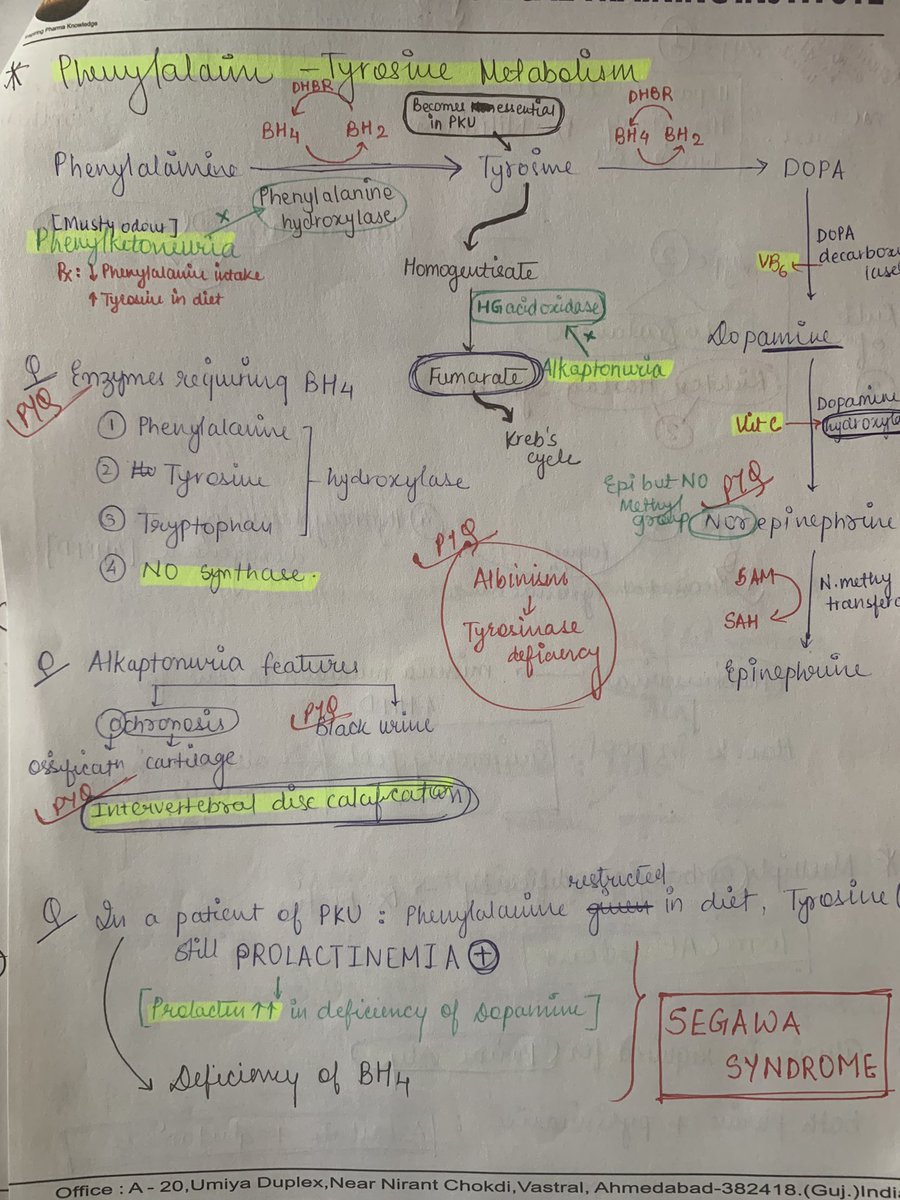 Inspiring Pharma Knowledge
* Phenylalanin - Tyrosine Metabolism
DHBR
BH4 BH2
Becomes essential
in PKU
DHBR
BH4 BH2
Phenylalanine Tyrosine DOPA
Phenylalanine
hydroxylase
[Musty odour] x
Phenylketonuria
Rx: ↓ Phenylalanin intake
↑ Tyrosine in diet
Homogentisate
HG acid oxidase
x
Alkaptonuria
Fumarate
Kreb's
cycle
DOPA
decarboxy
lase
VB6
Dopamine
Dopamine
hydroxyla
Vit C
PYQ
Epi but NO
Methyl
group
Nor epinephrine
SAM
SAH
N.methy
transfera
Epinephrine
Q Enzymes requiring BH4
PYQ
① Phenylalanine
② Tyrosine
③ Tryptophan
hydroxylase
④ NO synthase.
PYQ
Albinism
↓
Tyrosinase
deficiency
Q Alkaptonuria features
Ochronosis
PYQ
Black urine
Ossificatn cartilage
PYQ
Intervertebral disc calcification
Q In a patient of PKU : Phenylalanine given restricted in diet, Tyrosine (
still PROLACTINEMIA +
[Prolactin ↑↑ in deficiency of Dopamine]
Deficiency of BH4
SEGAWA
SYNDROME
Office : A - 20,Umiya Duplex,Near Nirant Chokdi,Vastral, Ahmedabad-382418.(Guj.)Indi